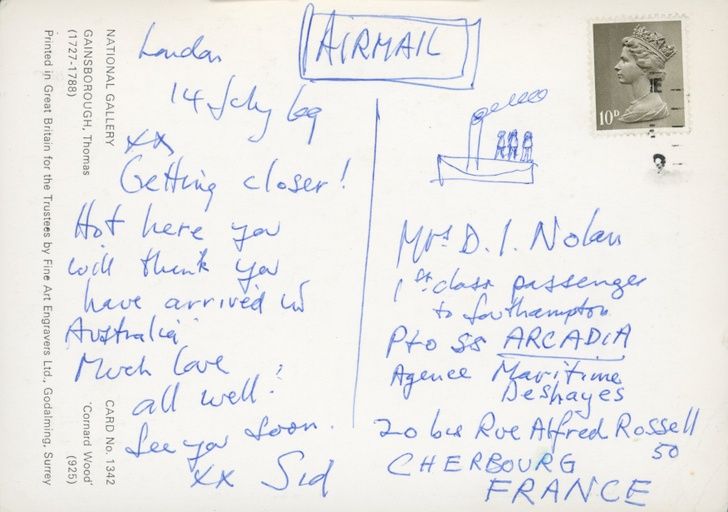 NATIONAL GALLERY
GAINSBOROUGH, Thomas
(1727-1788)
Printed in Great Britain for the Trustees by Fine Art Engravers Ltd., Godalming, Surrey
CARD No. 1342
'Cornard Wood'
(925)
London
14 July 69
xx
Getting closer!
Hot here you
will think you
have arrived in
Australia
Much love
all well!
See you soon.
xx Sid
AIRMAIL
10D
Mrs D. I. Nolan
1st class passenger
to Southampton
Pto SS ARCADIA
Agence Maritime
Deshayes
20 bis Rue Alfred Rossell
50
CHERBOURG
FRANCE